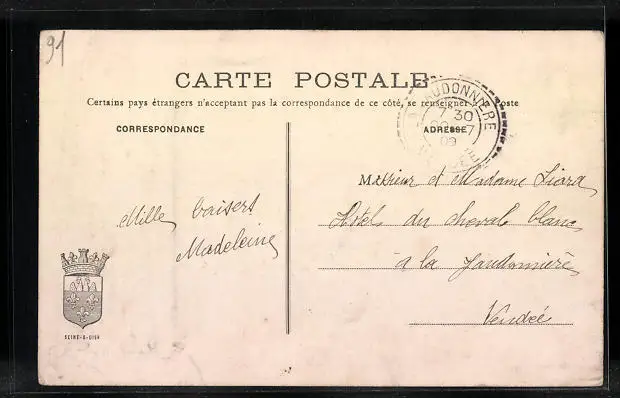 91
CARTE POSTALE
Certains pays étrangers n'acceptant pas la correspondance de ce côté, se renseigner Poste
CORRESPONDANCE
ADRESSE
JAUDONNIÈRE
7 30
09
Monsieur et Madame Liard
Hôtel du cheval blanc
à la Jaudonnière
Vendée
Mille baisers
Madeleine
SEINE-&-OISE